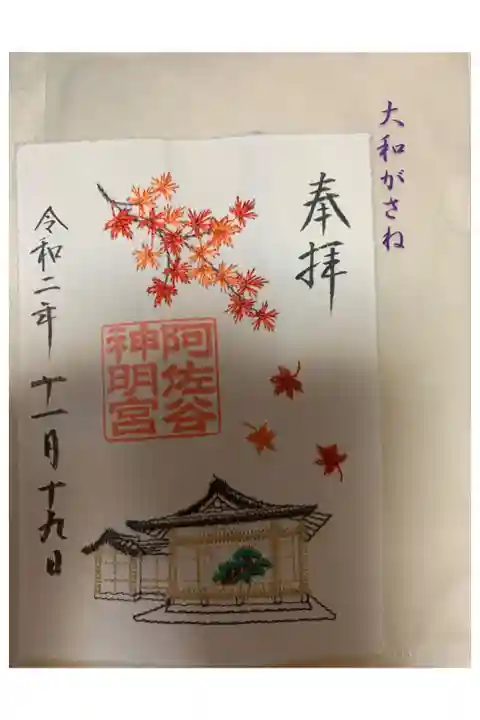 大和がさね
奉拝
阿佐谷
神明宮
令和二年 十一月十九日